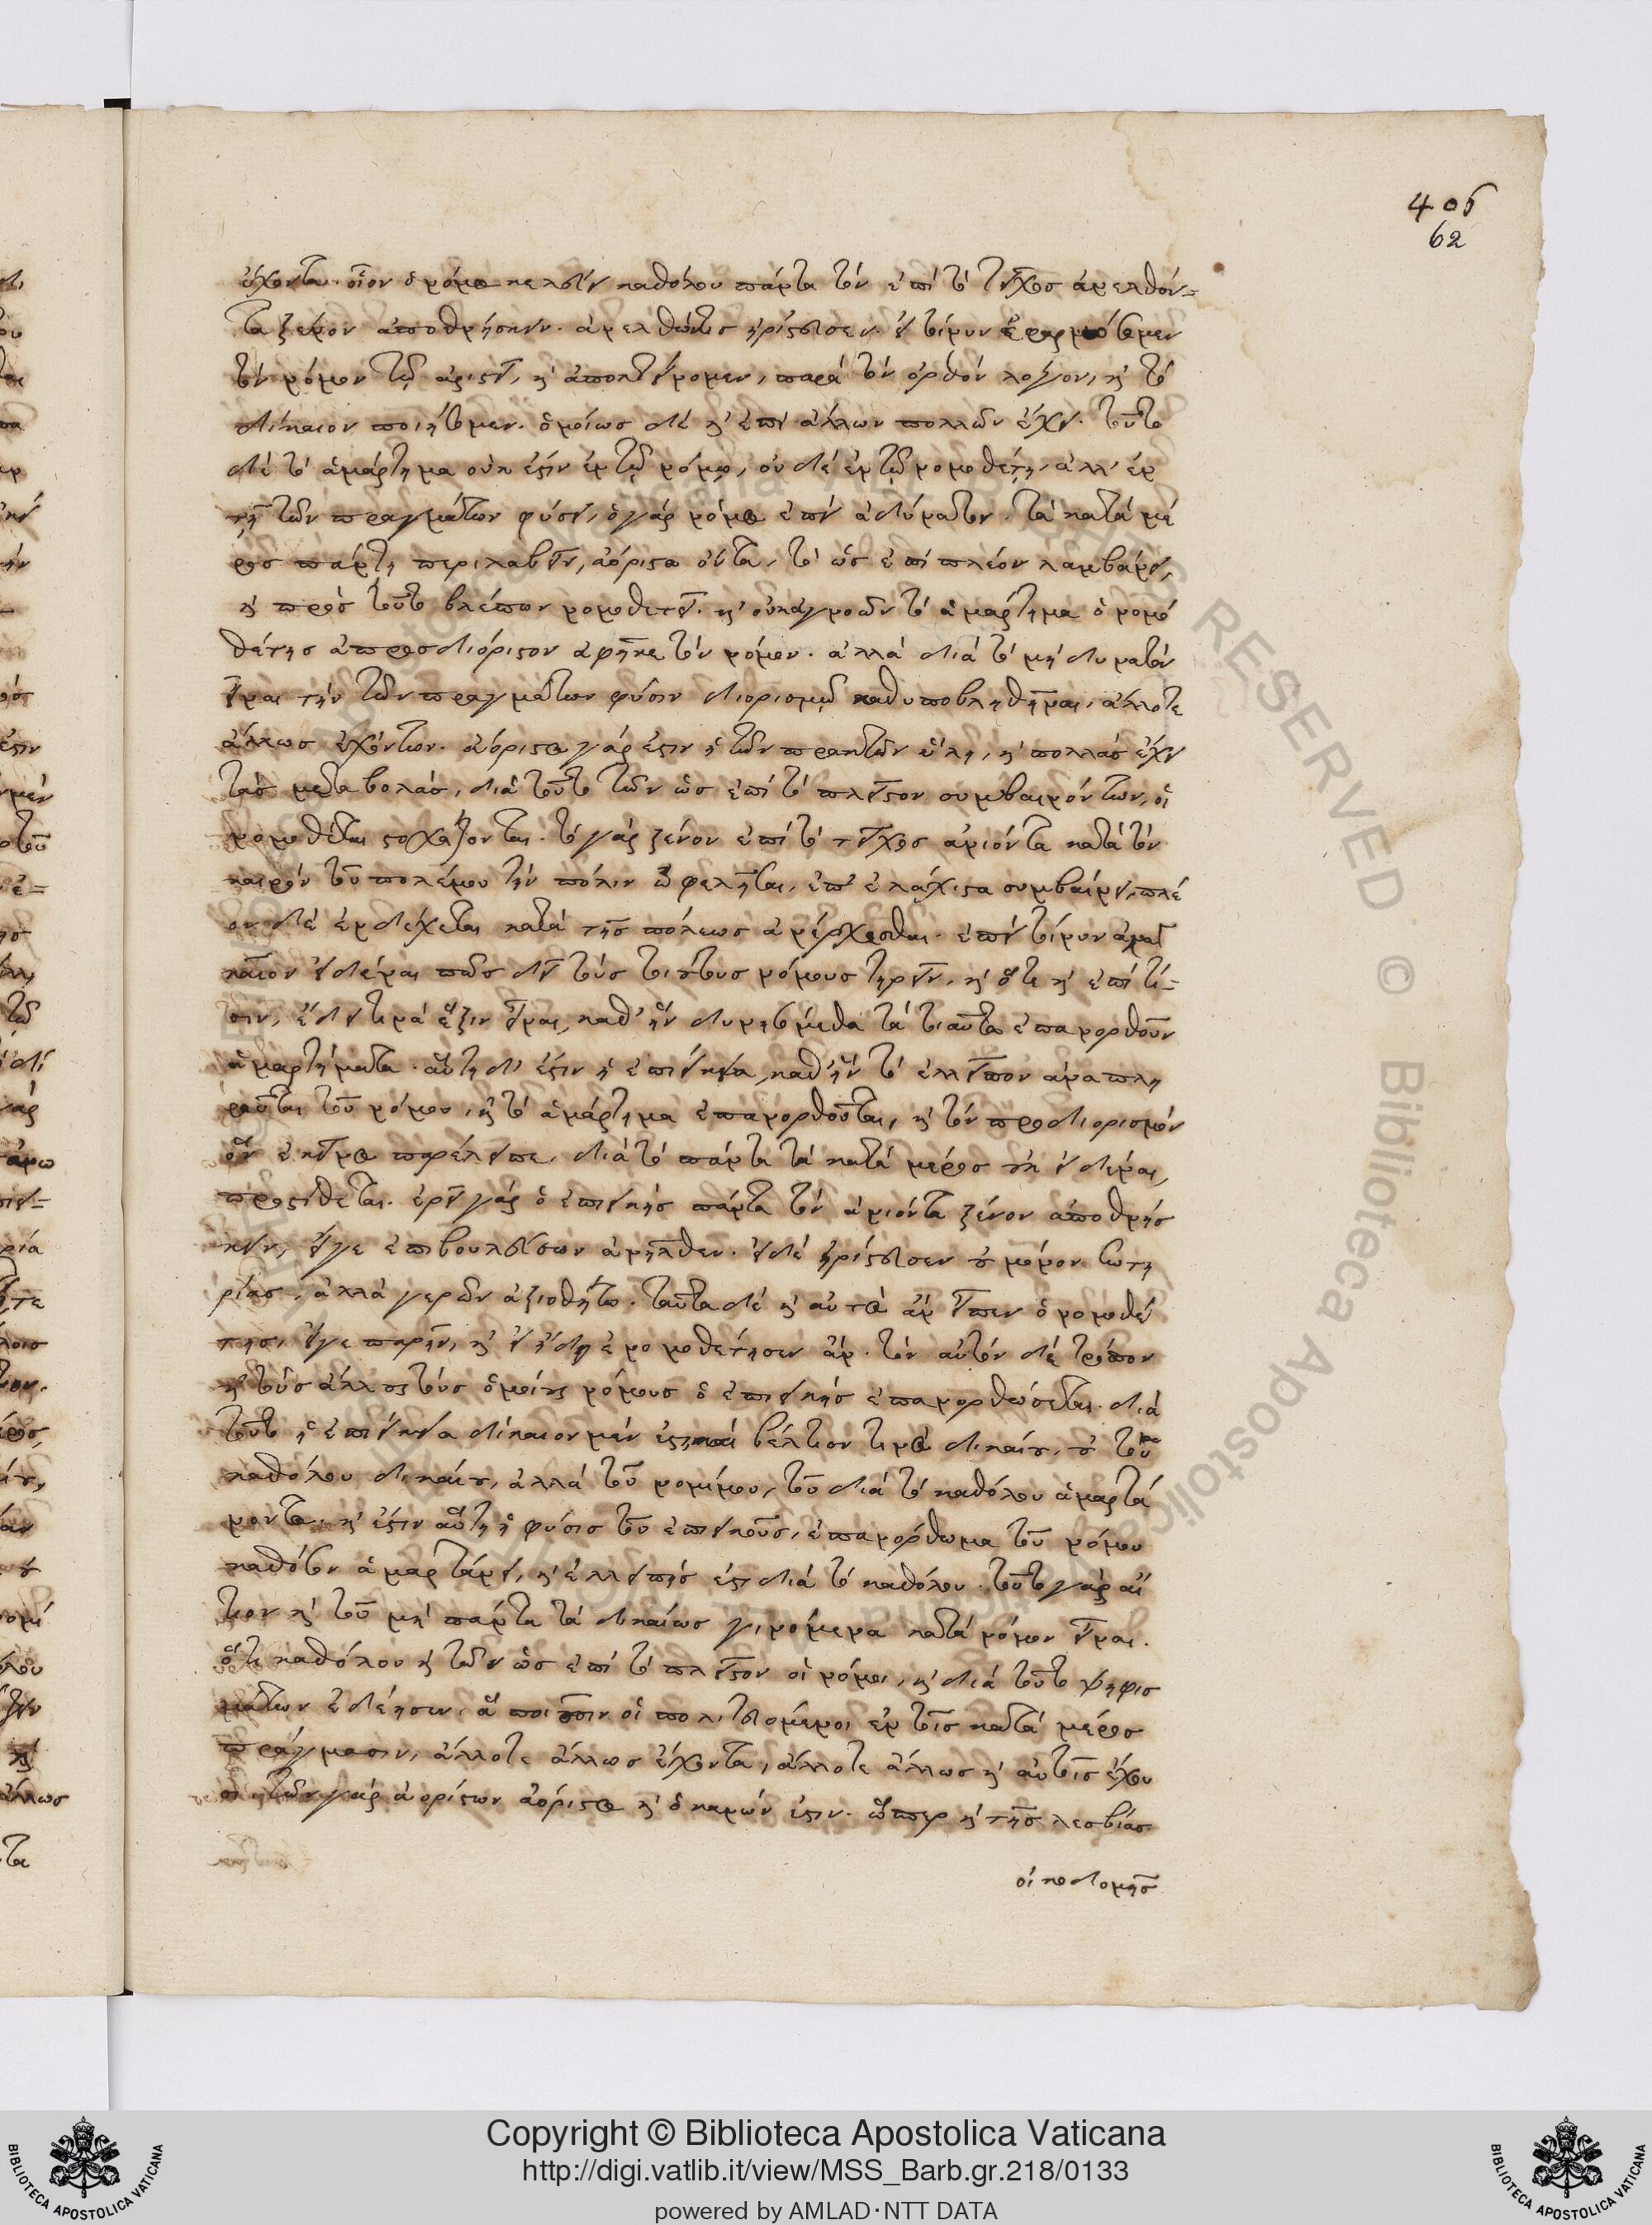 406
62
ἔχοντα. οἷον ὁ νόμος κελεύει καθόλου πάντα τὸν ἐπὶ τὸ τεῖχος ἀνελθόν=
τα ξένον ἀποθνήσκειν. ἀνελθών τις ἠρίστευσεν. εἰ τοίνυν ἐφαρμόσομεν
τὸν νόμον τῷ ἀριστεῖ, καὶ ἀποκτείνομεν, παρὰ τὸν ὀρθὸν λόγον, καὶ τὸ
δίκαιον ποιήσομεν. ὁμοίως δὲ καὶ ἐπὶ ἄλλων πολλῶν ἔχει. τοῦτο
δὲ τὸ ἁμάρτημα οὐκ ἔστιν ἐν τῷ νόμῳ, οὐδὲ ἐν τῷ νομοθέτῃ, ἀλλ' ἐν
τῇ τῶν πραγμάτων φύσει, ὁ γὰρ νόμος ἐπεὶ ἀδύνατον τὰ κατὰ μέ
ρος πάντῃ περιλαβεῖν, ἀόριστα ὄντα, τὸ ὡς ἐπὶ πλέον λαμβάνει,
καὶ πρὸς τοῦτο βλέπων νομοθετεῖ. καὶ οὐκ ἀγνοῶν τὸ ἁμάρτημα ὁ νομο
θέτης ἀπροσδιόριστον ἀφῆκε τὸν νόμον. ἀλλὰ διὰ τὸ μὴ δυνατὸν
εἶναι τὴν τῶν πραγμάτων φύσιν διορισμῷ καθυποβληθῆναι, ἄλλοτε
ἄλλως ἐχόντων. ἀόριστος γάρ ἐστιν ἡ τῶν πρακτῶν ὕλη, καὶ πολλὰς ἔχει
τὰς μεταβολάς, διὰ τοῦτο τῶν ὡς ἐπὶ τὸ πλεῖστον συμβαινόντων, οἱ
νομοθέται στοχάζονται. τὸ γὰρ ξένον ἐπὶ τὸ τεῖχος ἀνιόντα κατὰ τὸν
καιρὸν τοῦ πολέμου τὴν πόλιν ὠφελῆσαι, ἐπ' ἐλάχιστα συμβαίνει, πλέ
ον δὲ ἐνδέχεται κατὰ τῆς πόλεως ἀνέρχεσθαι. ἐπεὶ τοίνυν ἀναγ
καῖον εἰδέναι πῶς δεῖ τοὺς τοιούτους νόμους τηρεῖν, καὶ ὅτε καὶ ἐπὶ τί=
σιν, ἔδει τινὰ ἕξιν εἶναι, καθ' ἣν δυνησόμεθα τὰ τοιαῦτα ἐπανορθοῦν
ἁμαρτήματα. αὕτη δ' ἐστὶν ἡ ἐπιείκεια, καθ' ἣν τὸ ἐλλεῖπον ἀναπλη
ροῦται τοῦ νόμου, καὶ τὸ ἁμάρτημα ἐπανορθοῦται, καὶ τὸν προσδιορισμὸν
ὃν ἐκεῖνος παρέλειπε, διὰ τὸ πάντα τὰ κατὰ μέρος μὴ εἰδέναι,
προστίθεται. ἐρεῖ γὰρ ὁ ἐπιεικὴς πάντα τὸν ἀνιόντα ξένον ἀποθνήσ
κειν, εἴγε ἐπιβουλεύσων ἀνῆλθεν. εἰ δὲ ἠρίστευσεν οὐ μόνον σωτη
ρίας, ἀλλὰ γερῶν ἀξιοθήτω. ταῦτα δὲ καὶ αὐτὸς ἂν εἶπεν ὁ νομοθέ
της, εἴγε παρῆν, καὶ εἰ ᾔδει ἐνομοθέτησεν ἄν. τὸν αὐτὸν δὲ τρόπον
καὶ τοὺς ἄλλους τοὺς ὁμοίους νόμους ὁ ἐπιεικὴς ἐπανορθώσεται. διὰ
τοῦτο ἡ ἐπιείκεια δίκαιον μέν ἐστι καὶ βέλτιον τινὸς δικαίου, οὐ τοῦ
καθόλου δικαίου, ἀλλὰ τοῦ νομίμου, τοῦ διὰ τὸ καθόλου ἁμαρτά
νοντος. καὶ ἔστιν αὕτη ἡ φύσις τοῦ ἐπιεικοῦς, ἐπανόρθωμα τοῦ νόμου
καθόσον ἁμαρτάνει, καὶ ἐλλειπής ἐστι διὰ τὸ καθόλου. τοῦτο γὰρ αἴ
τιον καὶ τοῦ μὴ πάντα τὰ δικαίως γινόμενα κατὰ νόμον εἶναι.
ὅτι καθόλου καὶ τῶν ὡς ἐπὶ τὸ πλεῖστον οἱ νόμοι, καὶ διὰ τοῦτο ψηφισ
μάτων ἐδέησεν, ἃ ποιοῦσιν οἱ πολιτευόμενοι ἐν τοῖς κατὰ μέρος
πράγμασιν, ἄλλοτε ἄλλως ἔχοντα, ἄλλοτε ἄλλως καὶ αὐτοῖς ἔχου
σι, τῶν γὰρ ἀορίστων ἀόριστος καὶ ὁ κανών ἐστιν. ὥσπερ καὶ τῆς λεσβίας
οἰκοδομῆς
Copyright © Biblioteca Apostolica Vaticana
http://digi.vatlib.it/view/MSS_Barb.gr.218/0133
powered by AMLAD·NTT DATA